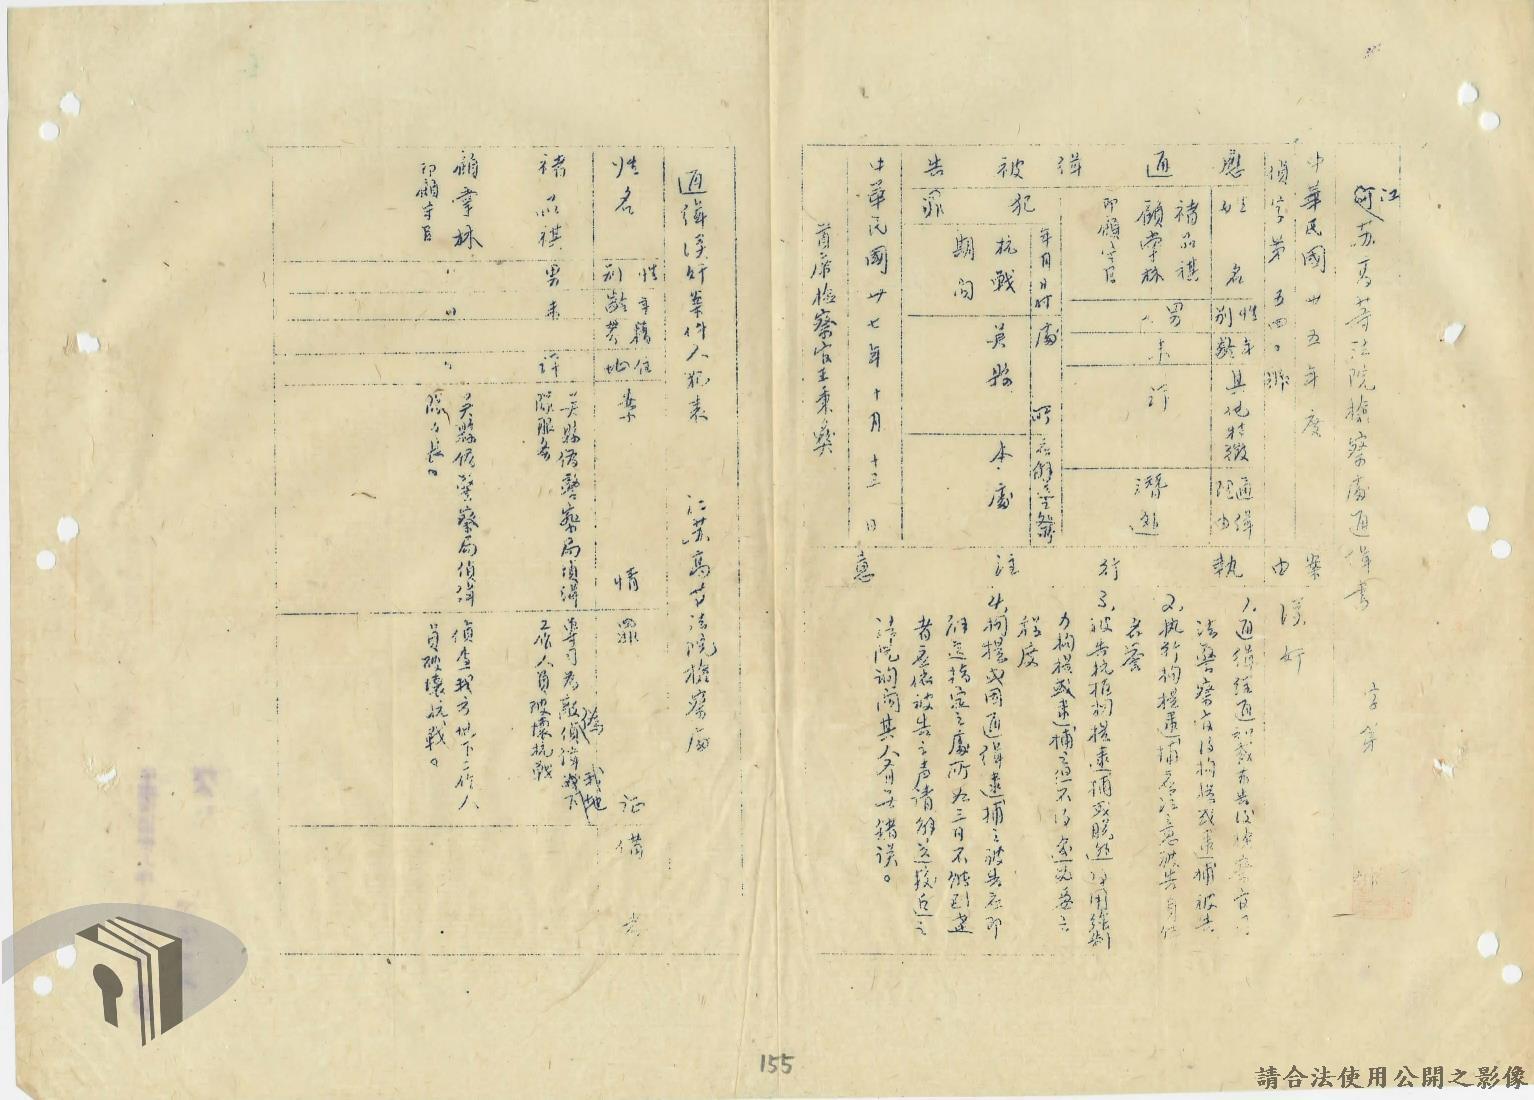 江蘇高等法院檢察處通緝書 字第
中華民國卅五年度
偵字第五四
案由 漢奸
應通緝被告
姓名 性別 年齡 其他特徵 通緝理由
褚品祺 男 未詳 潛逃
顧掌林
即顧守白
犯罪
年月日時 處所 應解送處所
抗戰期間 吳縣 本處
中華民國卅七年十月十三日
首席檢察官王秉彝
執行注意
1、通緝經通知或布告後檢察官司
法警察官得拘提或逮捕被告
2、執行拘提逮捕應注意被告身體
名譽
3、被告抗拒拘提逮捕或脫逃得用強制
力拘提或逮捕之但不得逾必要之
程度
4、拘提或因通緝逮捕之被告應即
解送指定之處所如三日不能到達
者應依被告之聲請解送較近之
法院詢問其人有無錯誤。
通緝漢奸案件人犯表 江蘇高等法院檢察處
姓名 性別 年齡 籍貫 住地 案情 罪証 備考
褚品祺 男 未詳 吳縣偽警察局偵緝
隊服務
專司為敵偽偵緝我地下
工作人員破壞抗戰
顧掌林
即顧守白
吳縣偽警察局偵緝
隊々長。
偵查我方地下工作人
員破壞抗戰。
155
請合法使用公開之影像